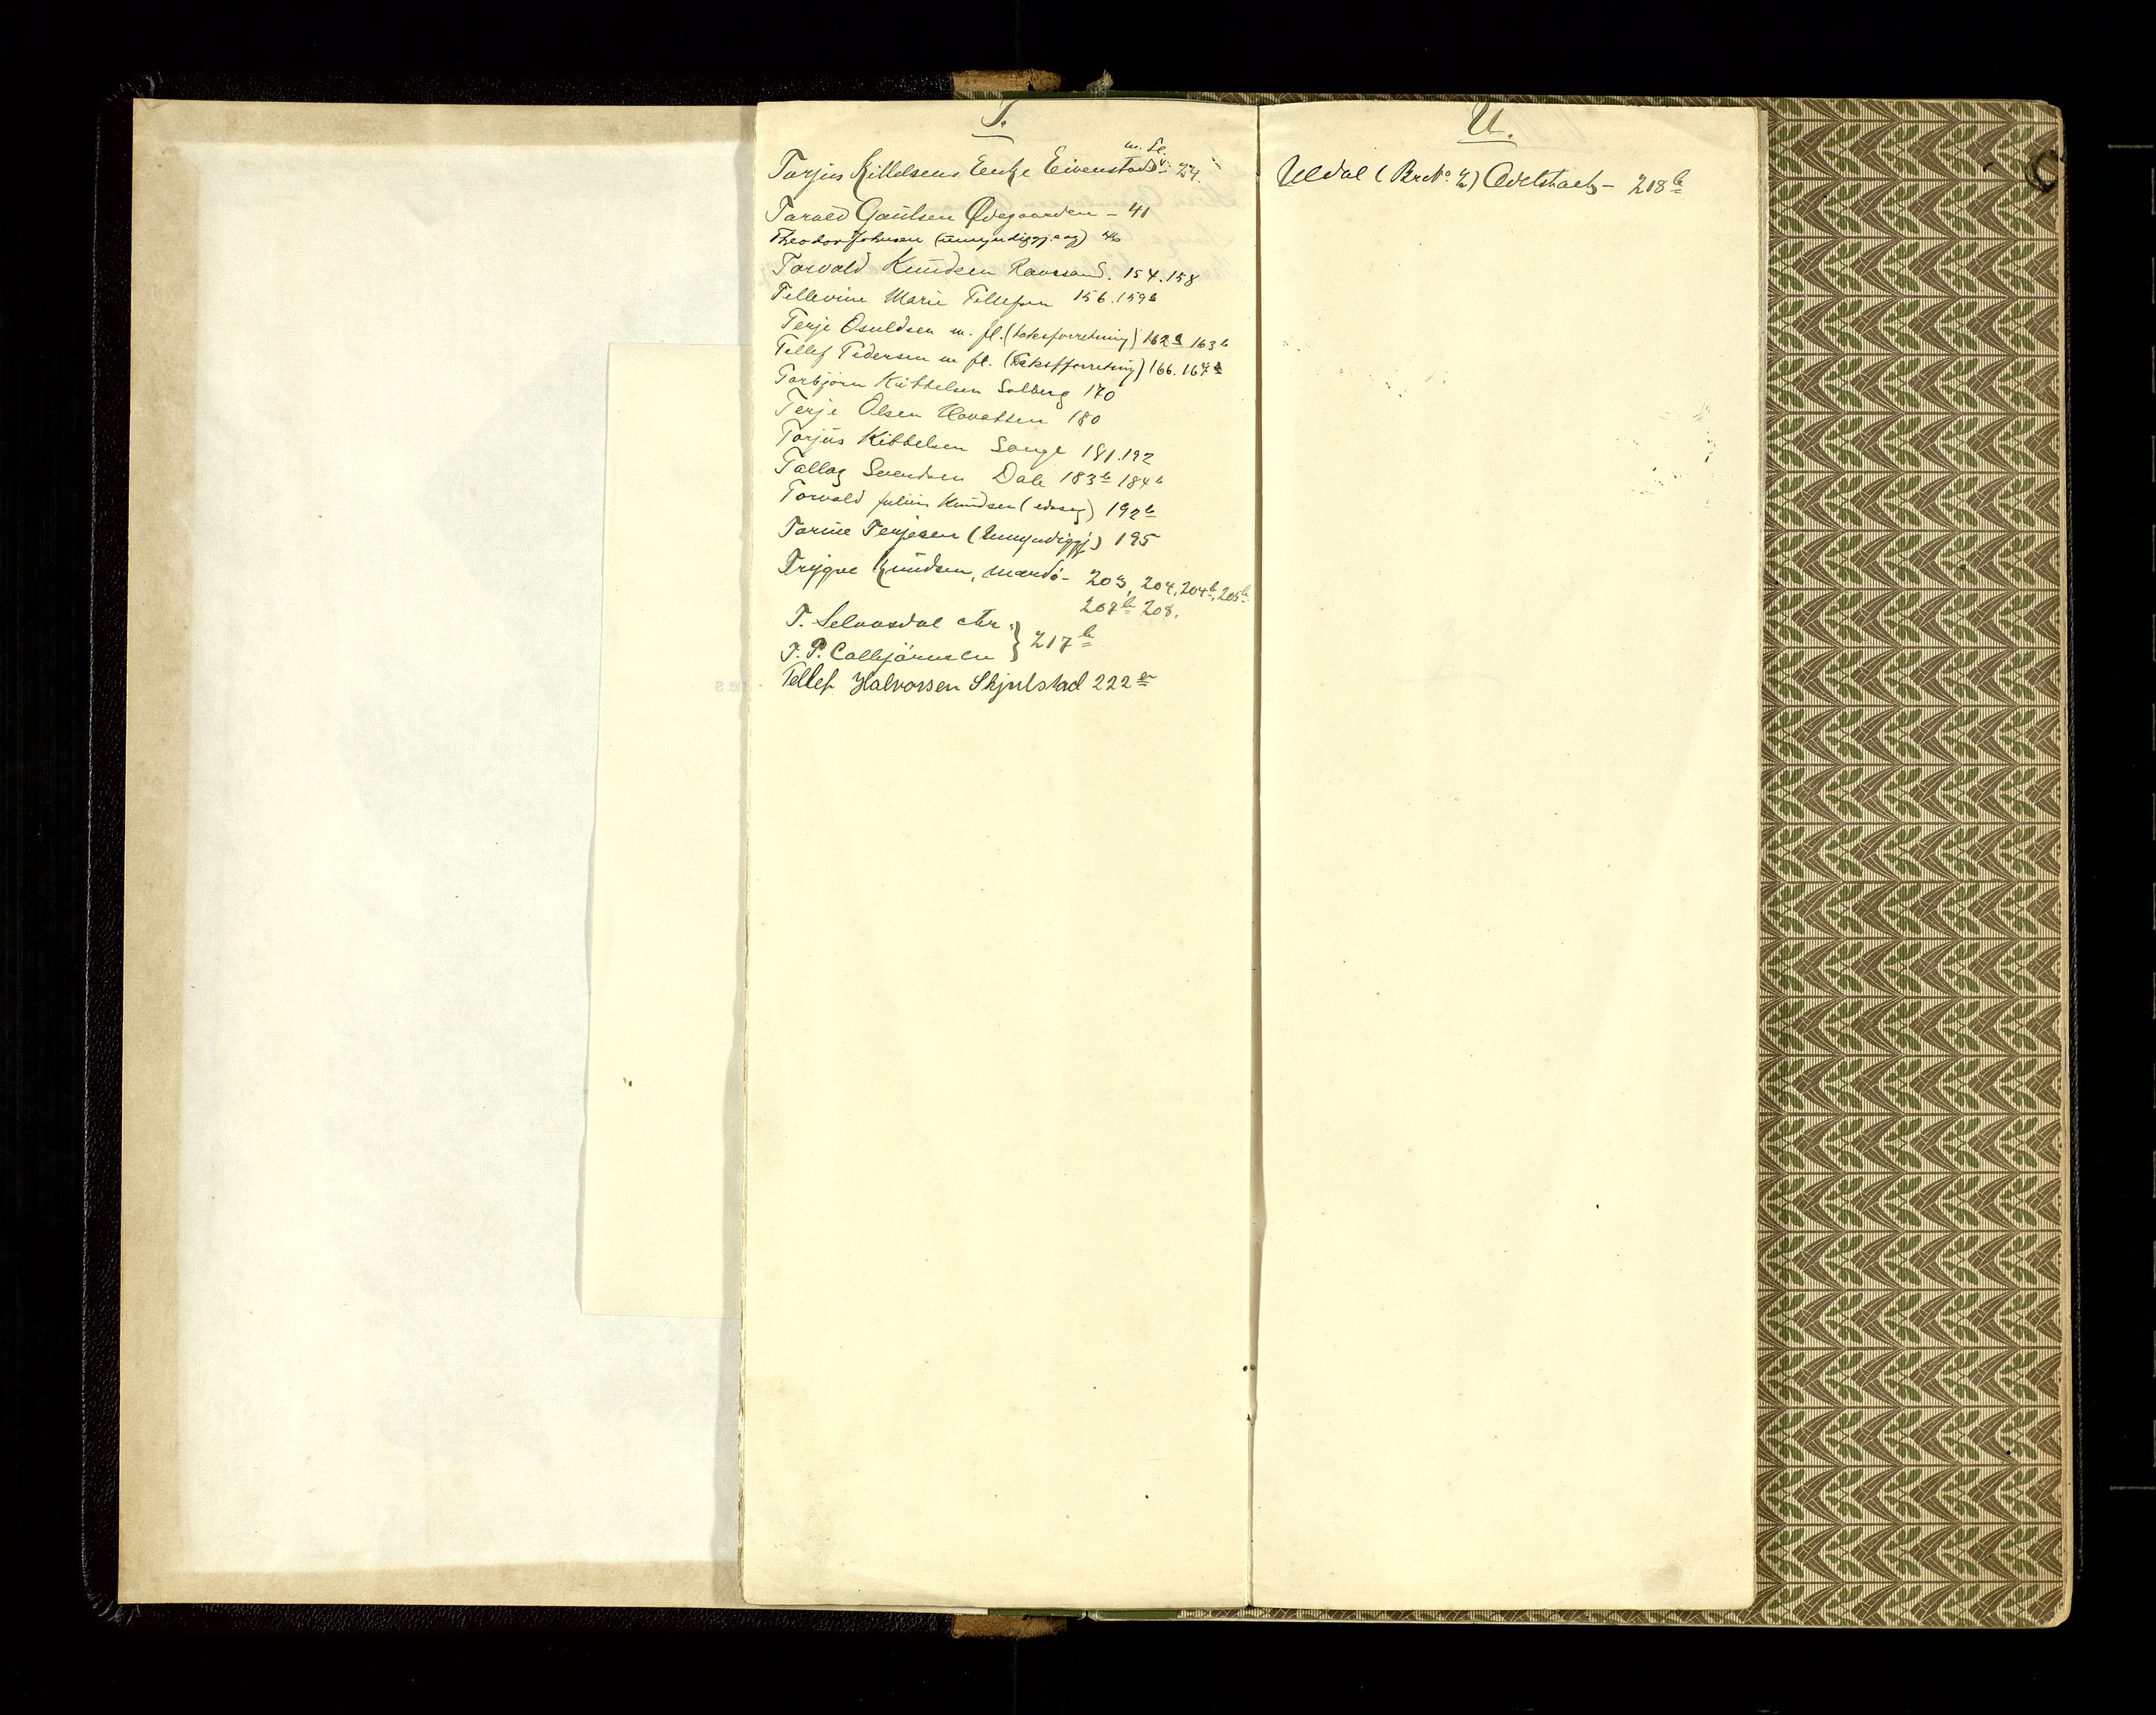 T.
m. fl.
Torjus Kittelsens Enke Eivenstad v. 24.
Tarald Gaulsen Ødegaarden - 41
Theodor Johnsen (umyndiggj.sag) 46
Torvald Knudsen Ravesand. 154.158
Tellevine Marie Tellefsen 156.159b
Terje Osuldsen m. fl. (takstforretning) 162a 163b
Tellef Pedersen m fl. (takstforretning) 166. 167a
Torbjørn Kittelsen Solberg 170
Terje Olsen Hovatten 180
Torjus Kittelsen Songe 181.192
Tallag Svendsen Dale 183b 184b
Torvald Julius Knudsen (edssag) 192b
Torine Terjesen (Umyndiggj) 195
Trygve Knudsen, Mærdø - 203, 204, 204b, 205b
207b 208.
T. Selaasdal ctr.
T. P. Calljørnsen } 217b
Tellef Halvorsen Skjulstad 222a
U.
Uldal (Br No 2) Odelstakst - 218b